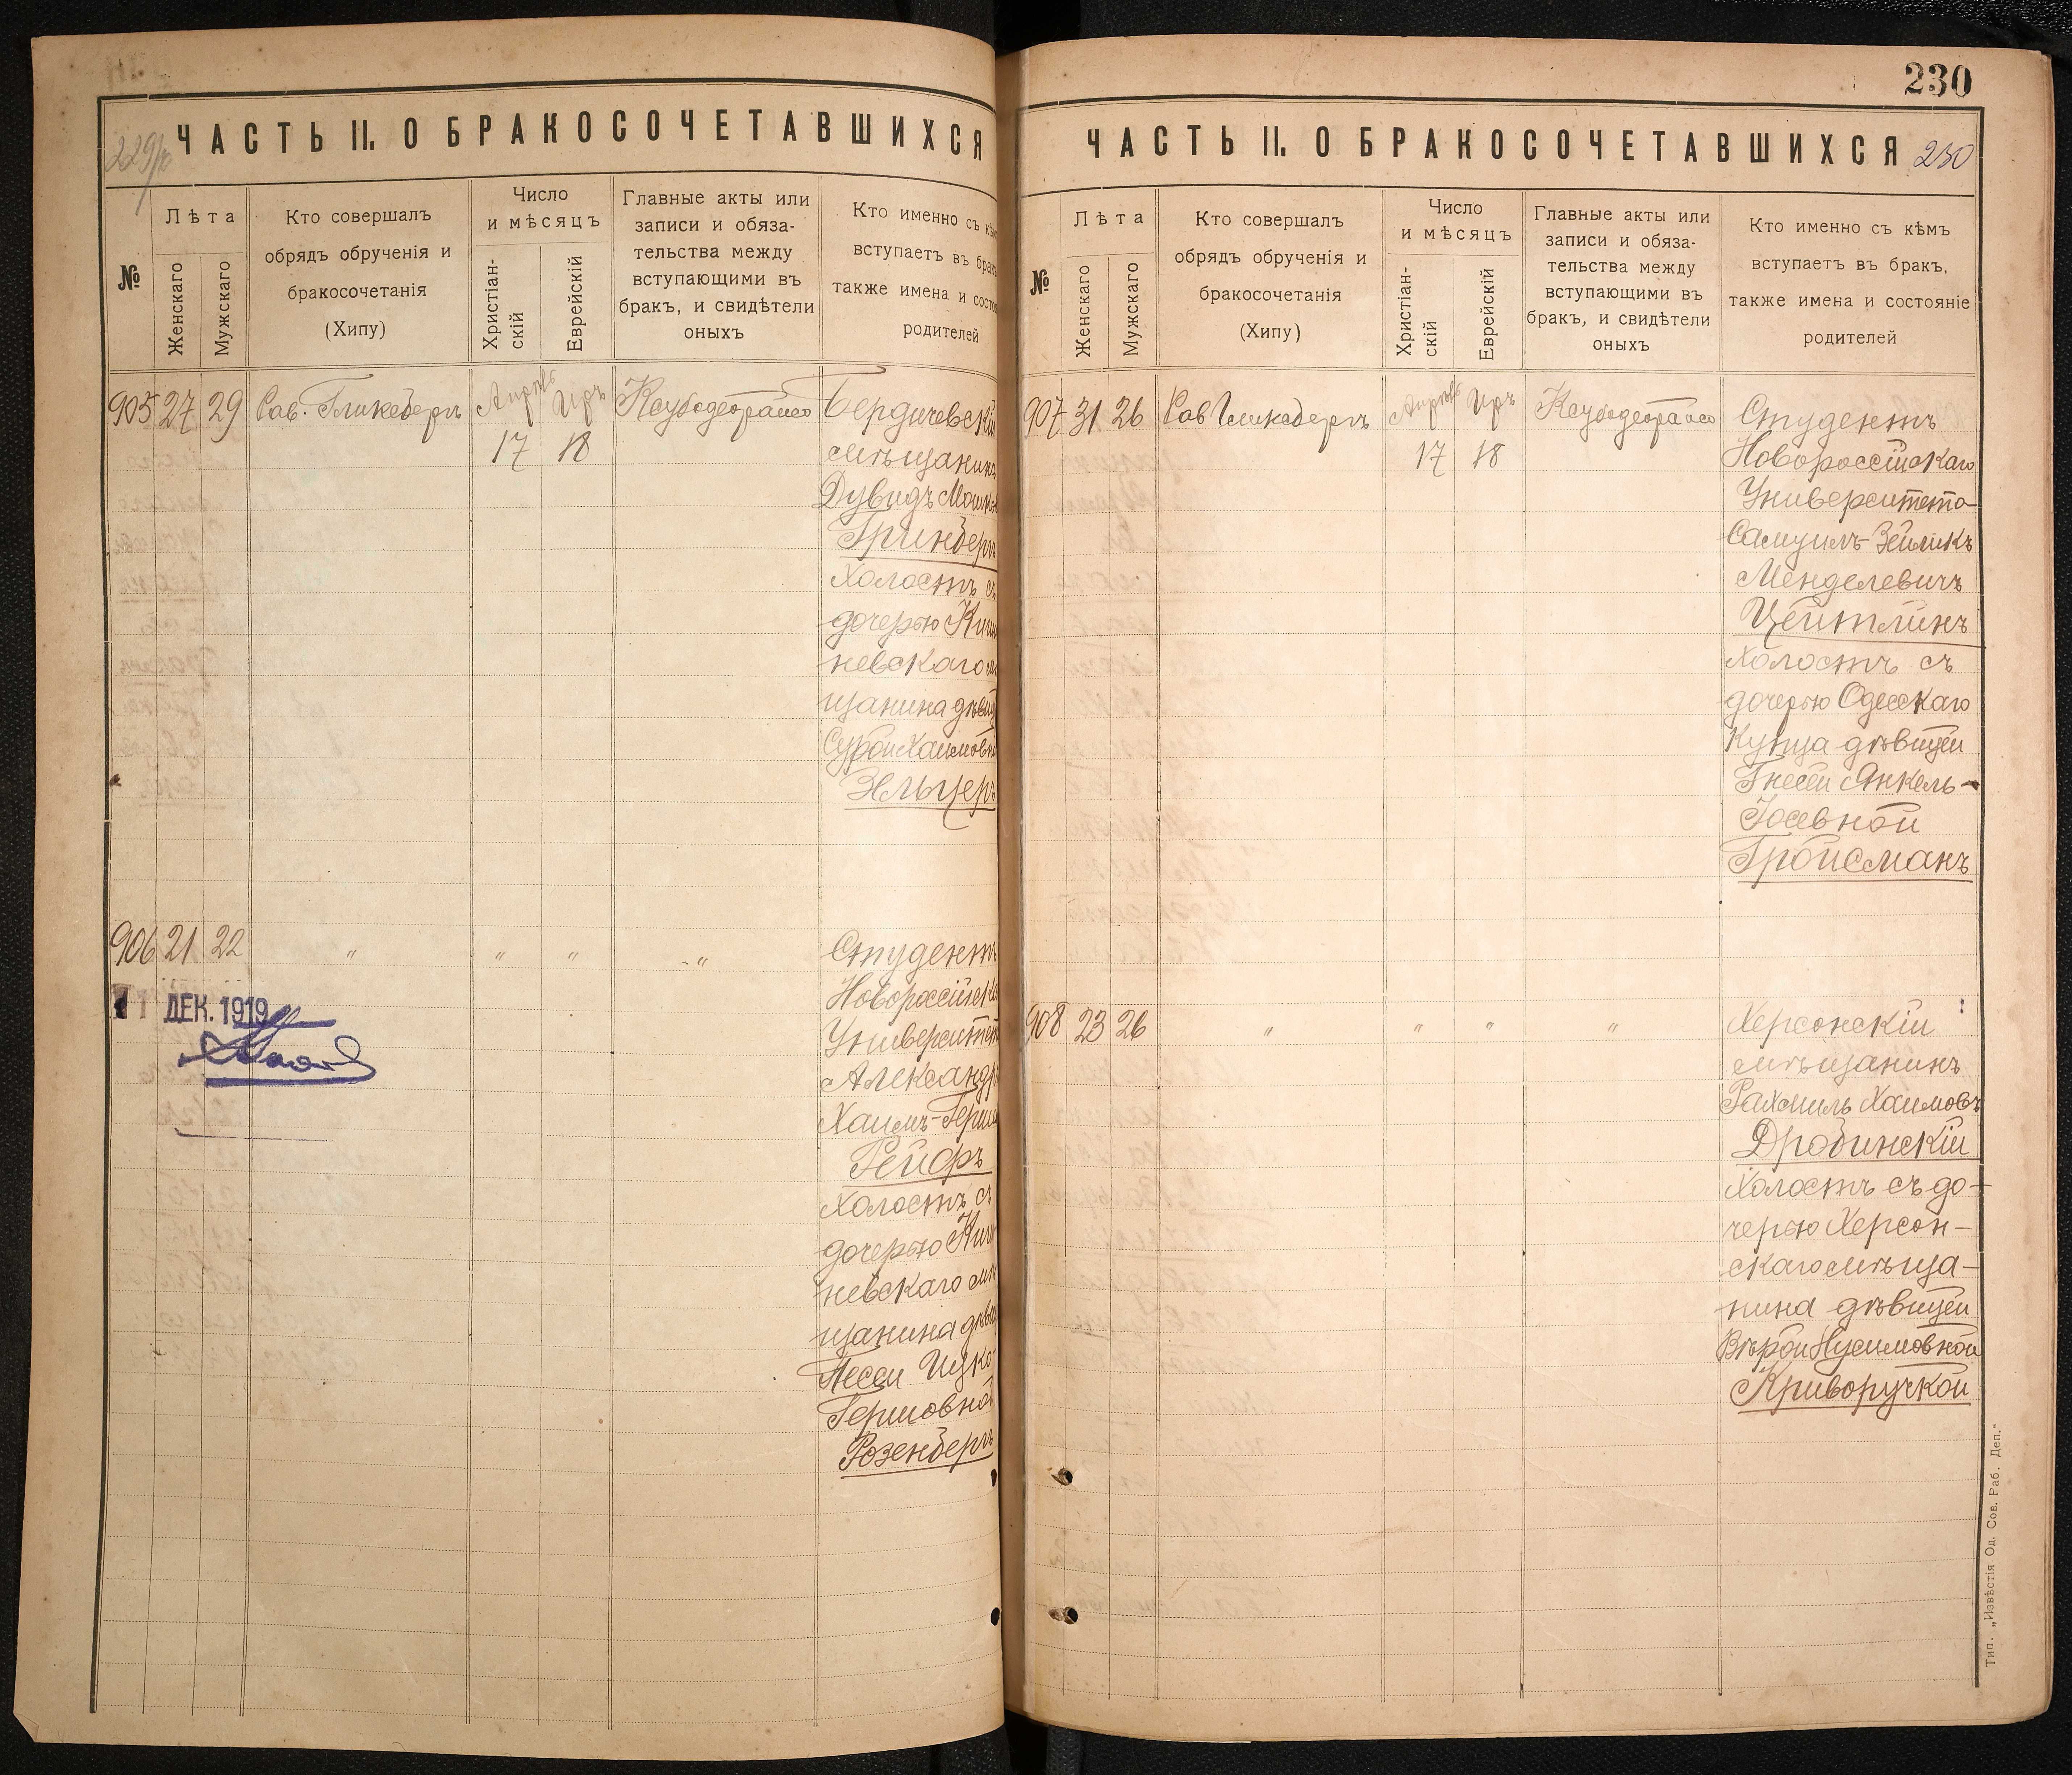 ЧАСТЬ II. О БРАКОСОЧЕТАВШИХСЯ
№
Лѣта
Женскаго
Мужскаго
Кто совершалъ
обрядъ обрученія и
бракосочетанія
(Хипу)
Число
и мѣсяцъ
Христіан-
скій
Еврейскій
Главные акты или
записи и обяза-
тельства между
вступающими въ
бракъ, и свидѣтели
оныхъ
Кто именно съ кѣм
вступаетъ въ брак
также имена и состо
родителей
905 27 29 Сав. Гликсбергъ Апрѣль 17 Иръ 18
Бердичевскій
мѣщанинъ
Дувидъ Мошков
Гринбергъ
Холостъ съ
дочерью Киши
невскаго мѣ
щанина дѣвиц
Сурой Хаимовн
Зельцеръ
906 21 22 " " " "
Студентъ
Новороссійска
Университет
Александр
Хаимъ-Герш
Рейфъ
Холостъ съ
дочерью Киши
невскаго мѣ
щанина дѣвиц
Песси Ицко-
Гершовной
Розенбергъ
ДЕК. 1919
230
ЧАСТЬ II. О БРАКОСОЧЕТАВШИХСЯ 230
№
Лѣта
Женскаго
Мужскаго
Кто совершалъ
обрядъ обрученія и
бракосочетанія
(Хипу)
Число
и мѣсяцъ
Христіан-
скій
Еврейскій
Главные акты или
записи и обяза-
тельства между
вступающими въ
бракъ, и свидѣтели
оныхъ
Кто именно съ кѣмъ
вступаетъ въ бракъ,
также имена и состояніе
родителей
907 31 26 Сав Гликсбергъ Апрѣль 17 Иръ 18
Студентъ
Новороссійскаго
Университета
Самуилъ-Зейликъ
Менделевичъ
Цейтлинъ
Холостъ съ
дочерью Одесскаго
Купца дѣвицей
Гнесей Янкель-
Іосевной
Гройсманъ
908 23 26 " " " "
Херсонскій
мѣщанинъ
Рахмиль Хаимовъ
Дробинскій
Холостъ съ до-
черью Херсон-
скаго мѣща-
нина дѣвицей
Вѣрой Нусимовной
Криворучкой
Тип. „Извѣстія Од. Сов. Раб. Деп.“